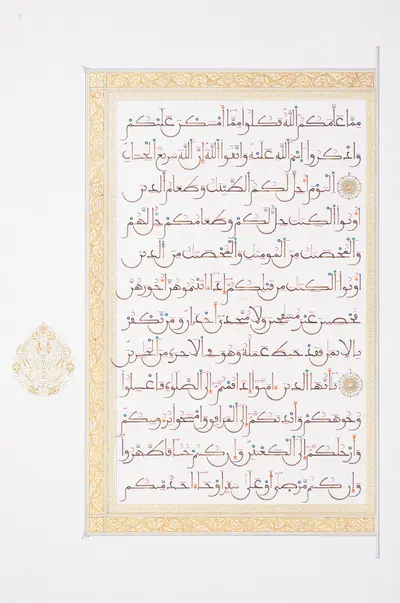 مما علمكم الله فكلوا مما أمسكن عليكم
واذكروا اسم الله عليه واتقوا الله إن الله سريع الحساب
اليوم أحل لكم الطيبت وطعام الذين
أوتوا الكتب حل لكم وطعامكم حل لهم
والمحصنت من المومنت والمحصنت من الذين
أوتوا الكتب من قبلكم إذا ءاتيتموهن أجورهن
محصنين غير مسفحين ولا متخذي أخدان ومن يكفر
بالايمن فقد حبط عمله وهو في الاخرة من الخسرين
يأيها الذين ءامنوا إذا قمتم إلى الصلوة فاغسلوا
وجوهكم وأيديكم إلى المرافق وامسحوا برءوسكم
وأرجلكم إلى الكعبين وإن كنتم جنبا فاطهروا
وإن كنتم مرضى أو على سفر أو جاء احد منكم